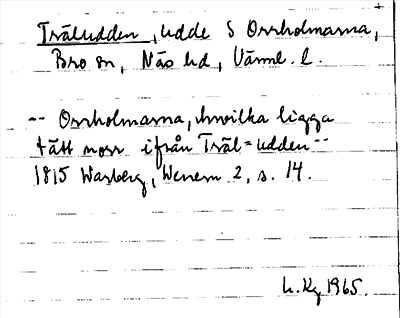 Träludden, udde S Orrholmarna,
Bro sn, Näs hd, Värml. l.
-- Orrholmarna, hwilka ligga
tätt norr ifrån Träl=udden --
1815 Warberg, Wenern 2, s. 14.
L. Kg 1965.